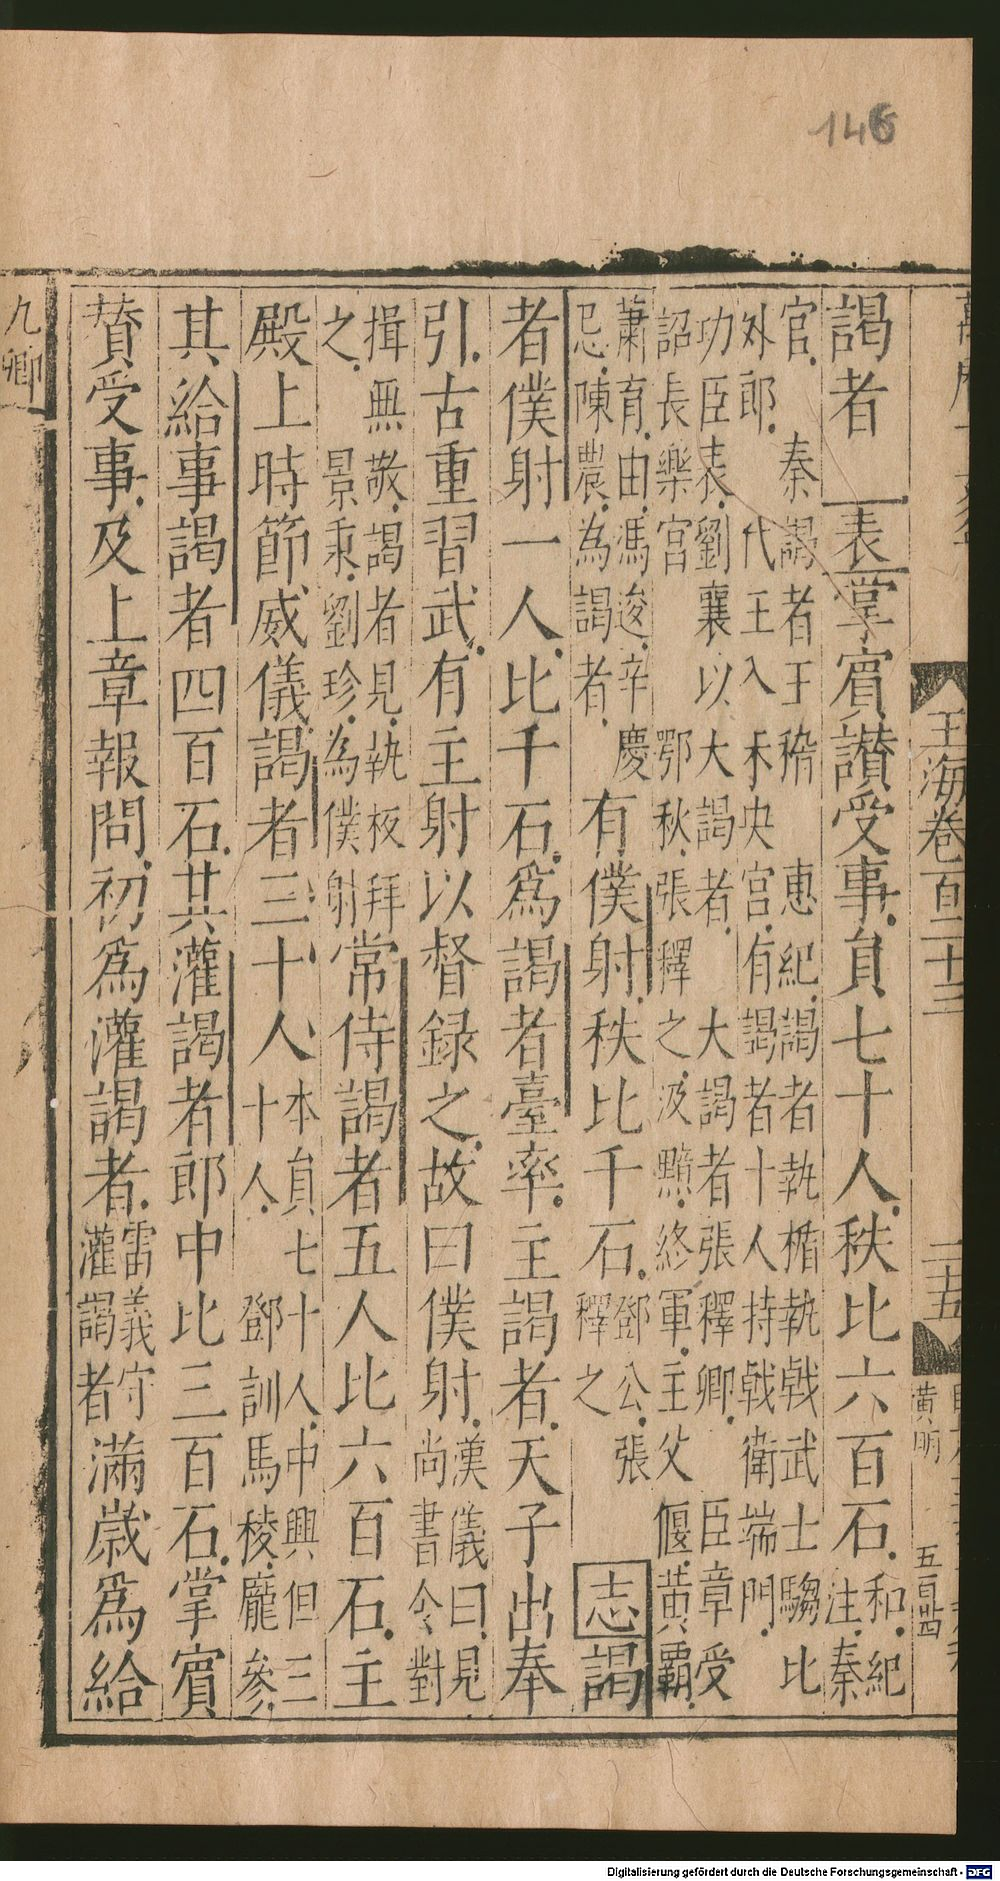 146
玉海卷百二十三
二十五
黄明
五百四
謁者 表 掌賓讃受事員七十人秩比六百石和紀注秦
官 秦謁者王稽 惠紀謁者執楯執戟武士騶比
外郎 代王入未央宮有謁者十人持戟衛端門
功臣表劉襄以大謁者 大謁者張釋卿 臣章受
詔長樂宮 鄂秋張釋之汲黯終軍主父偃黄霸
蕭育由馮逡辛慶
忌陳農為謁者
有僕射秩比千石鄧公張釋之 志 謁
者僕射一人比千石為謁者臺率主謁者天子出奉
引古重習武有主射以督録之故曰僕射漢儀曰見尚書令對
揖無敬謁者見執板拜
之 景秉劉珍為僕射
常侍謁者五人比六百石主
殿上時節威儀謁者三十人本員七十人中興但三十人 鄧訓馬稜龐參
其給事謁者四百石其灌謁者郎中比三百石掌賓
賛受事及上章報問初為灌謁者雷義守灌謁者滿歳為給
九卿
Digitalisierung gefördert durch die Deutsche Forschungsgemeinschaft - DFG